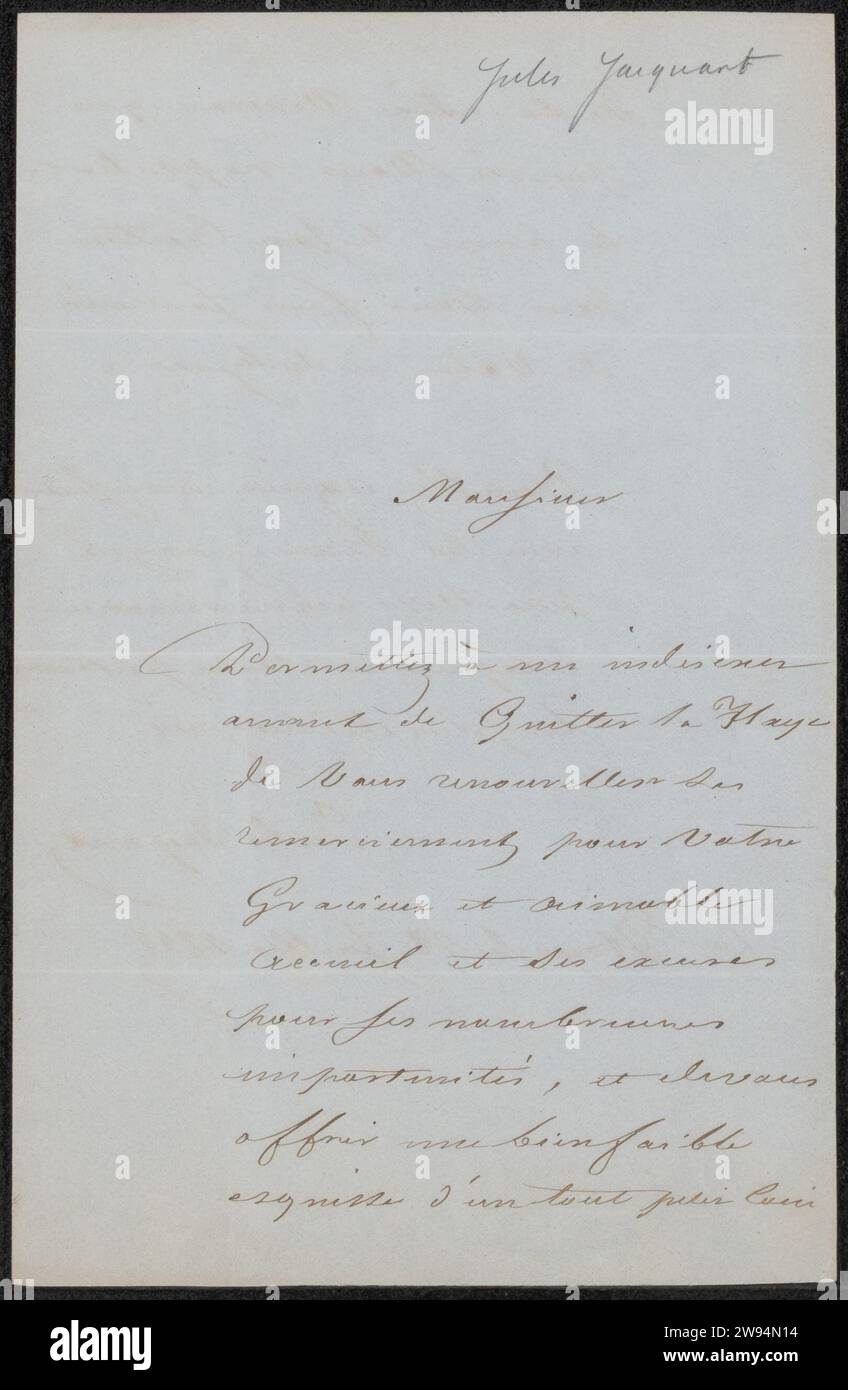 Jules Jacquart
Monsieur
Permettez à un indiscret
avant de Quitter la Haye
de Vous renouveller ses
remerciements pour Votre
Gracieux et aimable
accueil et ses excuses
pour ses nombreuses
importunités, et de vous
offrir une bien faible
esquisse d'un tout petit coin
alamy
Image ID: 2W94N14
www.alamy.com